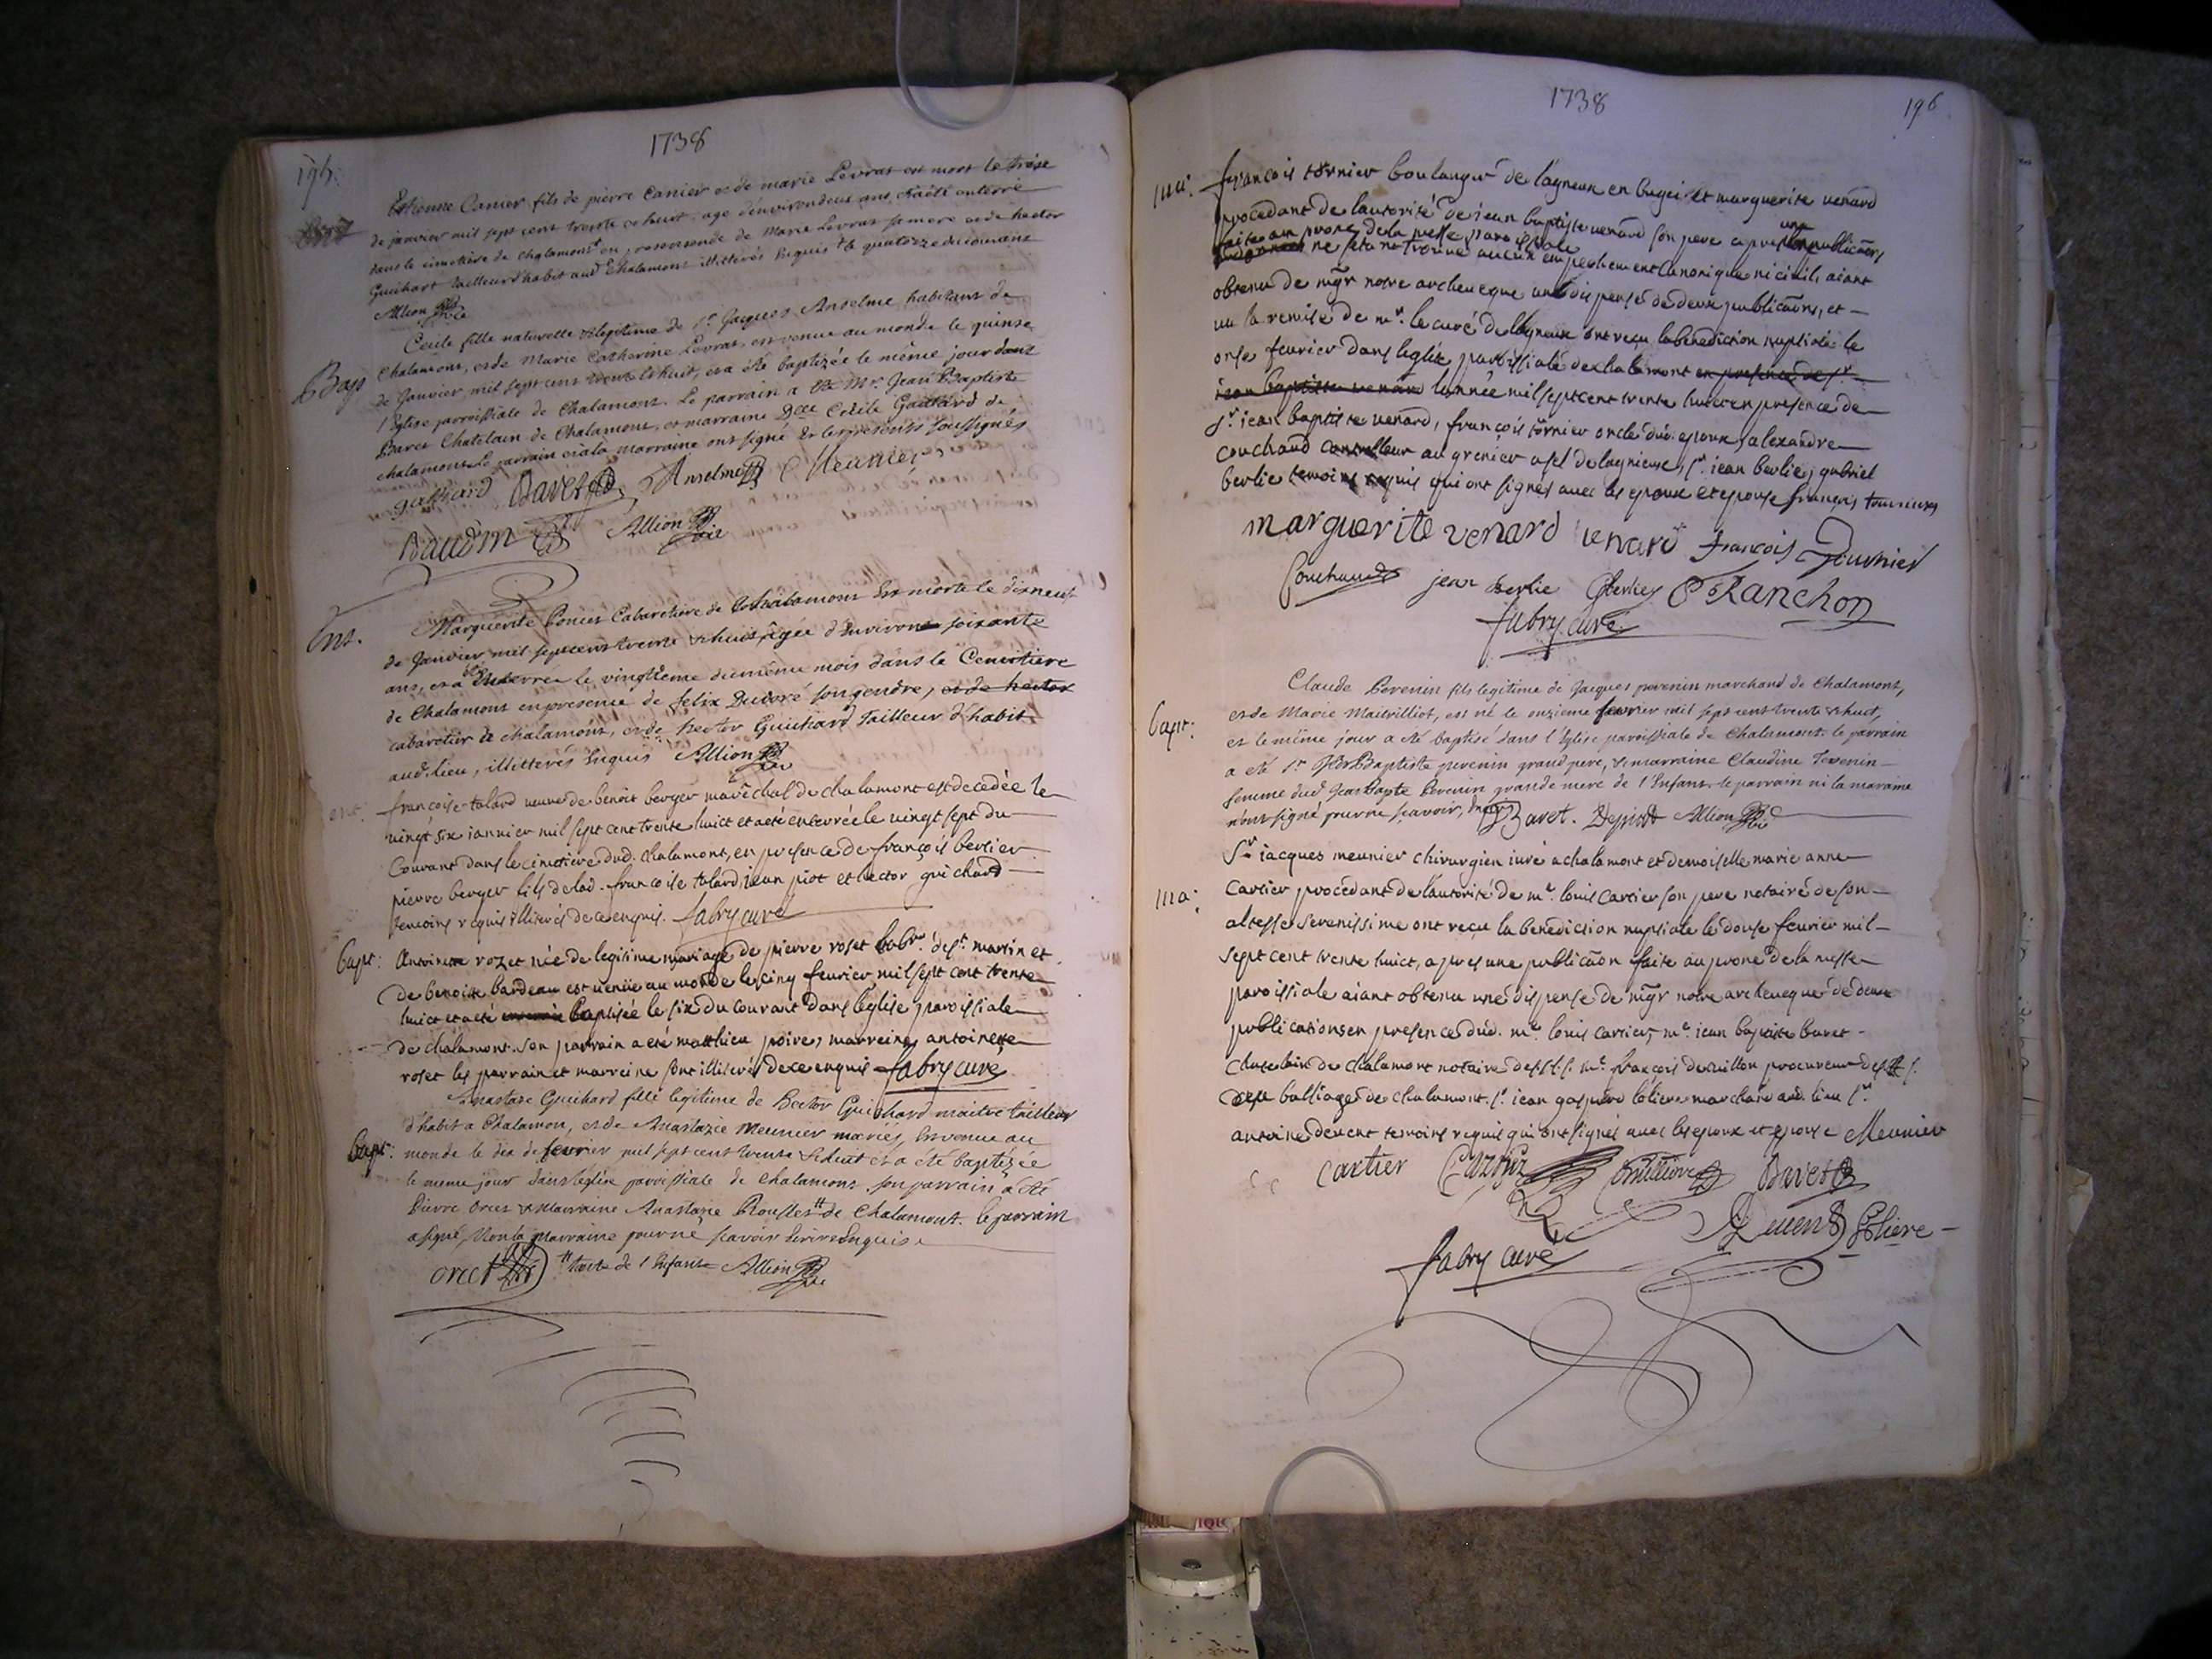 1738
195.
Estienne Canier fils de pierre Canier et de marie Levrat est mort le treise
de janvier mil sept cent trente et huit, agé d'environ deux ans, et a été enterré
dans le cimetière de chalamont en presence de Marie Levrat sa mere et de hector
Guichart tailleur d'habit aud Chalamont illitérés Enquis le quatorze du courant
Allion vic
Bap
Cecile fille naturelle et legitime de sr Jacques Anselme habitant de
chalamont, et de Marie Catherine Levrat, est venue au monde le quinse
de Janvier mil sept cent trente et huit, et a été baptizée le même jour dans
l'Eglise parroissiale de Chalamont. Le parrain a été Mr. Jean Baptiste
Baret Chatelain de Chalamont, et marraine Dlle Cecile Gaillard de
chalamont Le parrain et la marraine ont signé et les presents soussignés
Baret Anselme Meunier
Baudin Allion vic
Ent.
Marguerite Poncet Cabaretiere de Chalamont Est morte le dixneuf
de Janvier mil sept cent trente et huit, âgée d'Environ soixante
ans, et a été Enterrée le vingtieme du même mois dans le Cemetiere
de Chalamont en presence de felix Ducoré son gendre, et de hector
cabaretier de chalamont, et de hector Guichard Tailleur d'habit
aud. lieu, illitterés Enquis Allion vic
ent:
françoise talard veuve de benoit berger maréchal de chalamont est decedée le
vingt six ianvier mil sept cent trente huict et a eté enterrée le vingt sept du
Courant dans le cimetiere dud. chalamont, en presence de françois berlier
pierre berger fils de lad. françoise talard, jean piot et hector guichard
temoins requis illiterés de ce enquis. fabry curé
bapt:
Antoinette rozet née de legitime mariage de pierre roset labr. de st. martin et
de benoite bardeau est venüe au monde le cinq feurier mil sept cent trente
huict et a eté baptisée le six du courant dans l'eglise paroissiale
de chalamont. son parrain a eté matthieu poires, marreine antoinette
roset les parrain et marreine sont illiterés de ce enquis fabry curé
Bapt:
Anastase Guichard fille legitime de Hector Guichard maitre tailleur
d'habit a Chalamon, et de Anastazie Meunier mariés, Est venue au
monde le dix de fevrier mil sept cent trente et huit et a eté baptizée
le meme jour dans l'eglise paroissiale de chalamont. son parrain a été
Pierre Orcet et Marraine Anastazie Rousset # de Chalamont. le parrain
a signé, Non la marraine pour ne scavoir Ecrire Enquise
orcet # tante de l'Enfant Allion vic
1738
196
ma:
françois tornier boulanger de lagneux en bugei et marguerite venard
procedant de l'autorité de iean baptiste venard son pere apres une publication
faite au prone de la messe paroissiale
ne s'etant trouvé aucun empechement canonique ni civil, aiant
obtenu de mgr notre archeveque une dispense de deux publications, et
vu la remise de mr. le curé de lagneux ont reçu la benediction nuptiale le
onse feurier dans l'eglise paroissiale de chalamont en presence de sr.
iean baptiste venard l'année mil sept cent trente huict en presence de
sr. iean baptiste venard, françois tornier oncle dud. epoux, alexandre
couchaud controlleur au grenier a sel de lagnieux, sr. iean berlie, gabriel
berlie temoins requis qui ont signés avec les epoux et epouse françois tournier
marguerite venard venard françois Tournier
Couchaud jean berlie Gberlie Franchon
fabry curé
Bapt:
Claude Pevenin fils legitime de Jacques pevenin marchand de Chalamont,
et de Marie Maitvilliot, est né le onzieme fevrier mil sept cent trente et huit,
et le même jour a eté baptisé dans l'Eglise paroissiale de Chalamont. le parrain
a eté sr Jean Baptiste pevenin grand pere, et marraine Claudine Tevenin
femme dud Jean Bapte Pevenin grande mere de l'Enfant le parrain ni la maraine
n'ont signé pour ne scavoir, Enquis Baret. Allion vic
ma:
Sr. iacques meunier chirurgien iuré a chalamont et demoiselle marie anne
Cartier procedant de l'autorité de me. louis Cartier son pere notaire de son
altesse serenissime ont reçu la benediction nuptiale le douse feurier mil
sept cent trente huict, apres une publication faite au prone de la messe
paroissiale aiant obtenu une dispense de mgr notre archeveque de deux
publications en presence dud. me. louis Cartier, me. iean baptiste baret
chatelain de chalamont notaire de s.a.s. me. françois denillon procureur de s.a.s.
au balliage de chalamont. sr. iean gaspard lotiere marchand aud. lieu sr.
antoine devent temoins requis qui ont signés avec les epoux et epouse Meunier
Cartier Baret
fabry curé